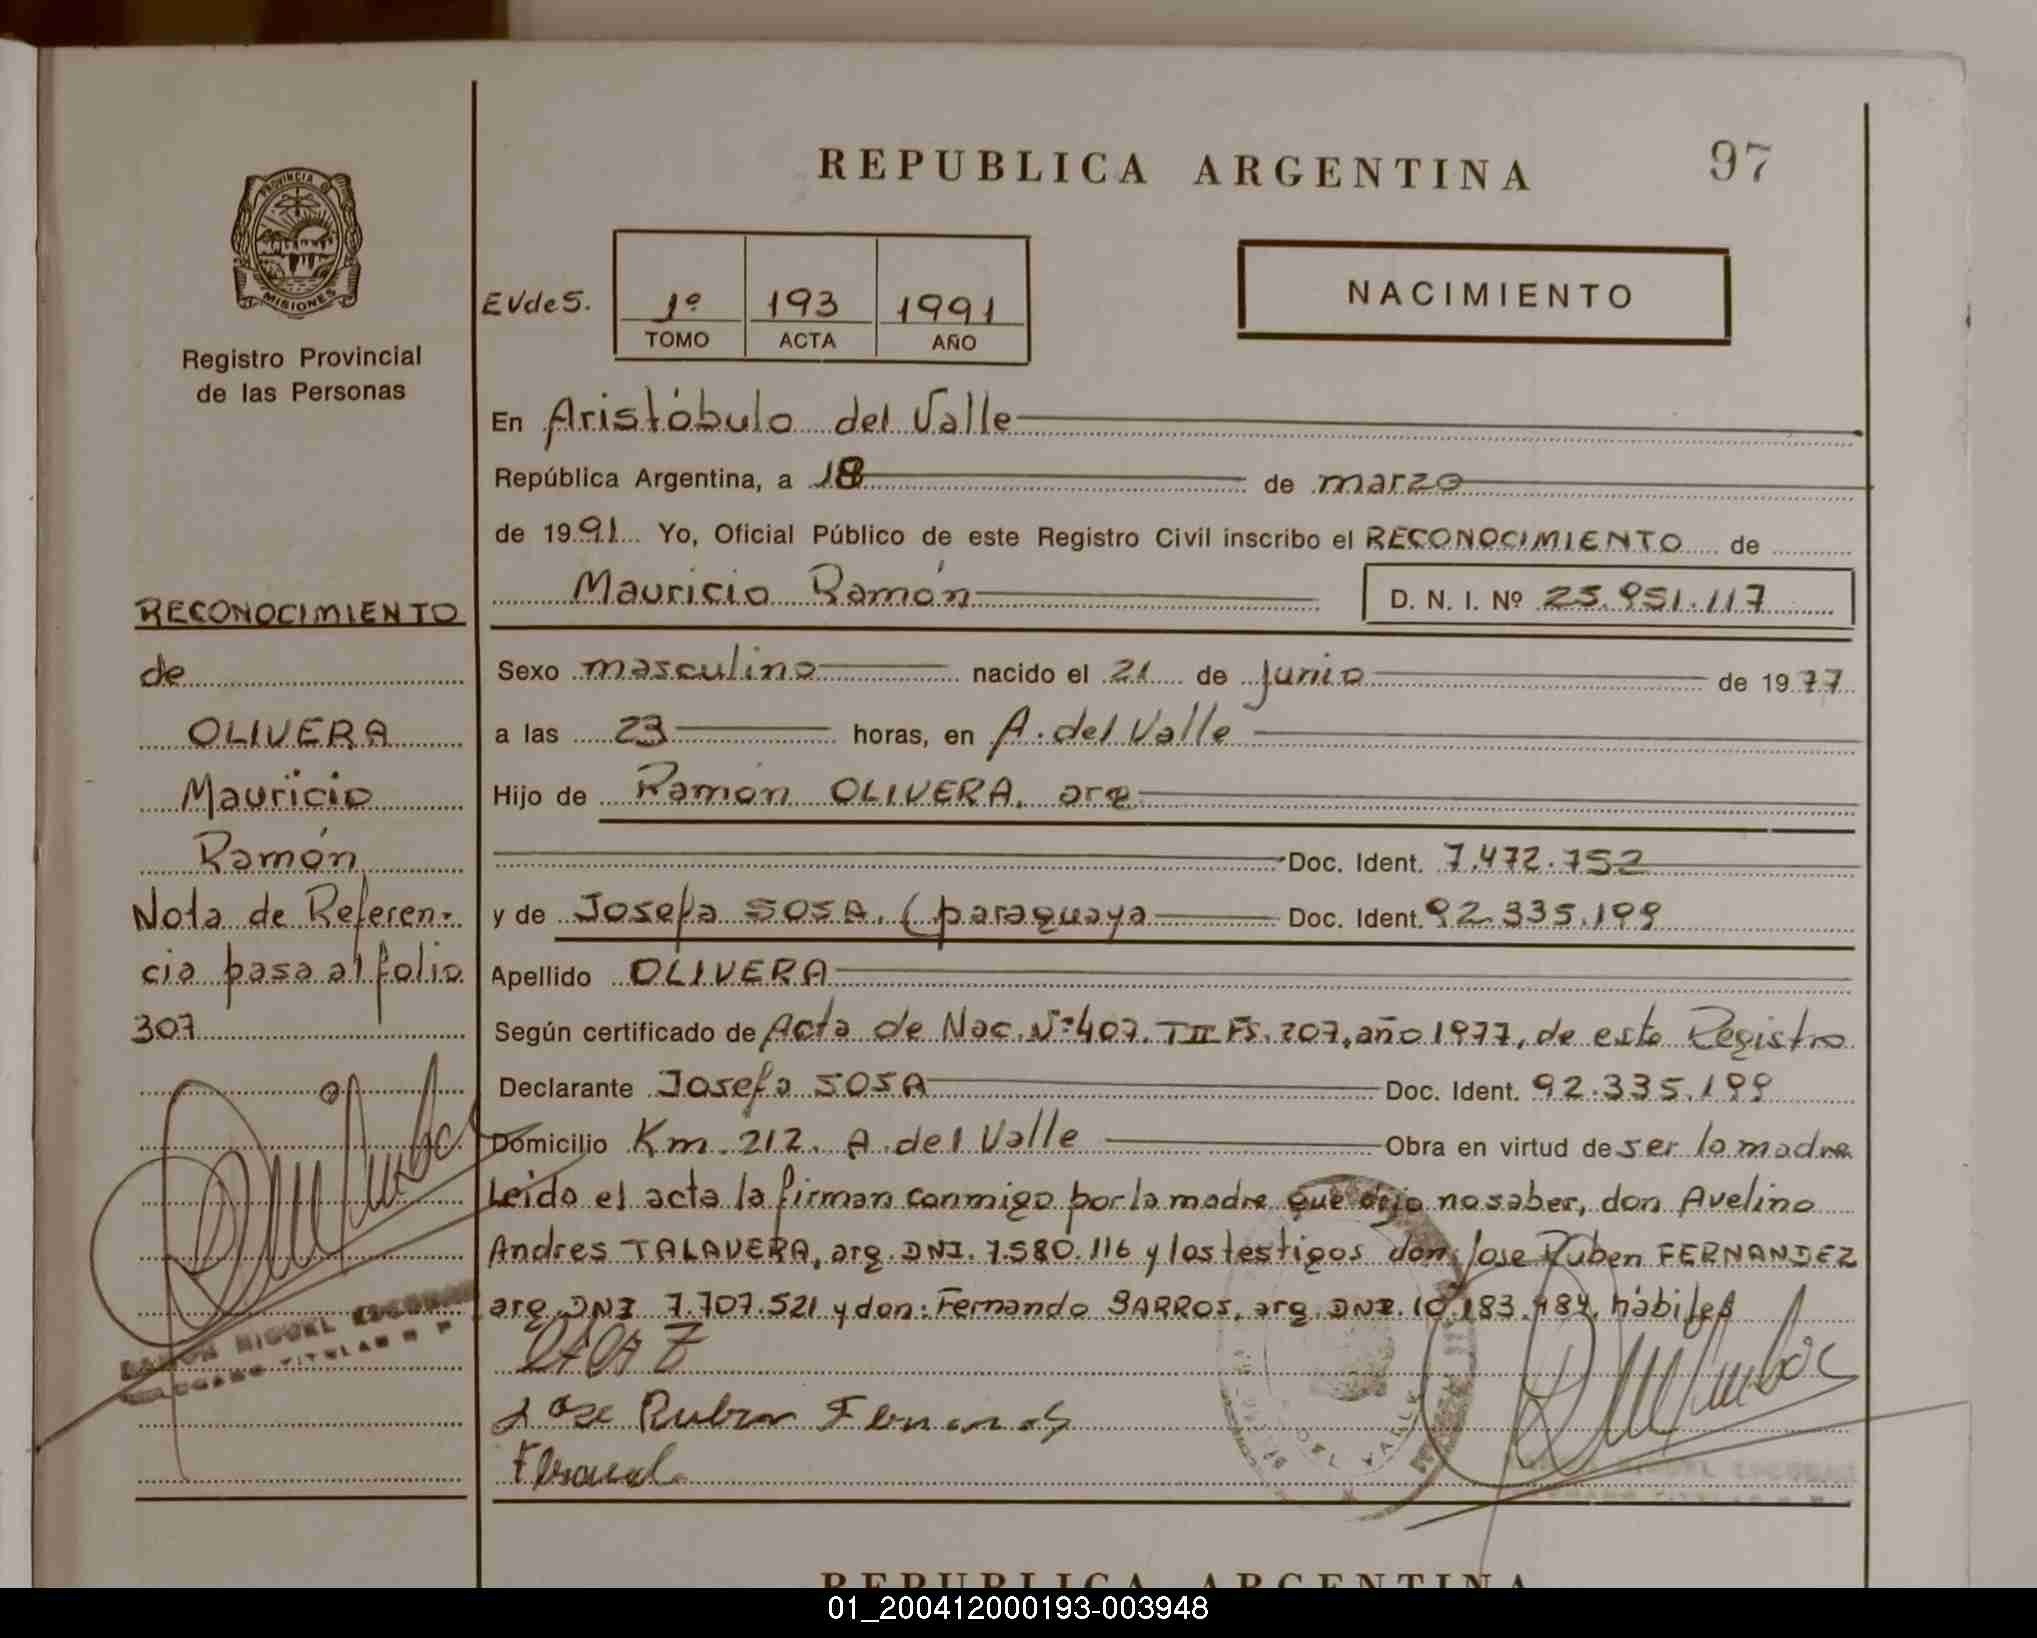 REPUBLICA ARGENTINA
97
PROVINCIA D
MISIONES
Registro Provincial
de las Personas
EVdeS.
1º 193 1991
TOMO ACTA AÑO
NACIMIENTO
En Aristóbulo del Valle
República Argentina, a 18 de marzo
de 1991 Yo, Oficial Público de este Registro Civil inscribo el RECONOCIMIENTO de
Mauricio Ramón D. N. I. Nº 25.951.117
Sexo masculino nacido el 21 de Junio de 1977
a las 23 horas, en A. del Valle
Hijo de Ramón OLIVERA, arg
Doc. Ident. 7.472.752
y de Josefa SOSA, (paraguaya Doc. Ident. 92.335.199
Apellido OLIVERA
Según certificado de Acta de Nac. Nº 407. T II Fs. 207, año 1977, de este Registro
Declarante Josefa SOSA Doc. Ident. 92.335.199
Domicilio Km. 212. A. del Valle Obra en virtud de ser la madre
Leido el acta la firman conmigo por la madre que dijo no saber, don Avelino
Andres TALAVERA, arg. DNI. 7.580.116 y los testigos don: Jose Ruben FERNANDEZ
arg. DNI 7.707.521 y don: Fernando BARROS, arg. DNI. 10.183.484, hábiles
Jose Ruben
RECONOCIMIENTO
de
OLIVERA
Mauricio
Ramón
Nota de Referen-
cia pasa al folio
307
RAMON MIGUEL ESCOBAR
TITULAR R P
DEL VALLE
MIGUEL ESCOBAR
REPUBLICA ARGENTINA
01_200412000193-003948